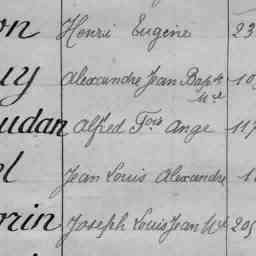 on Henri Eugène 23
uy Alexandre Jean Bapte Mie 10
udan Alfred Fois Ange 117
el Jean Louis Alexandre 1
rrin Joseph Louis Jean Mie 205